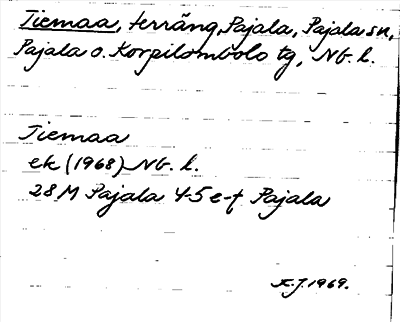 Tiemaa, terräng, Pajala, Pajala sn,
Pajala o. Korpilombolo tg, Nb. l.
Tiemaa
ek (1968) Nb. l.
28 M Pajala 4-5 e-f Pajala
K.J. 1969.